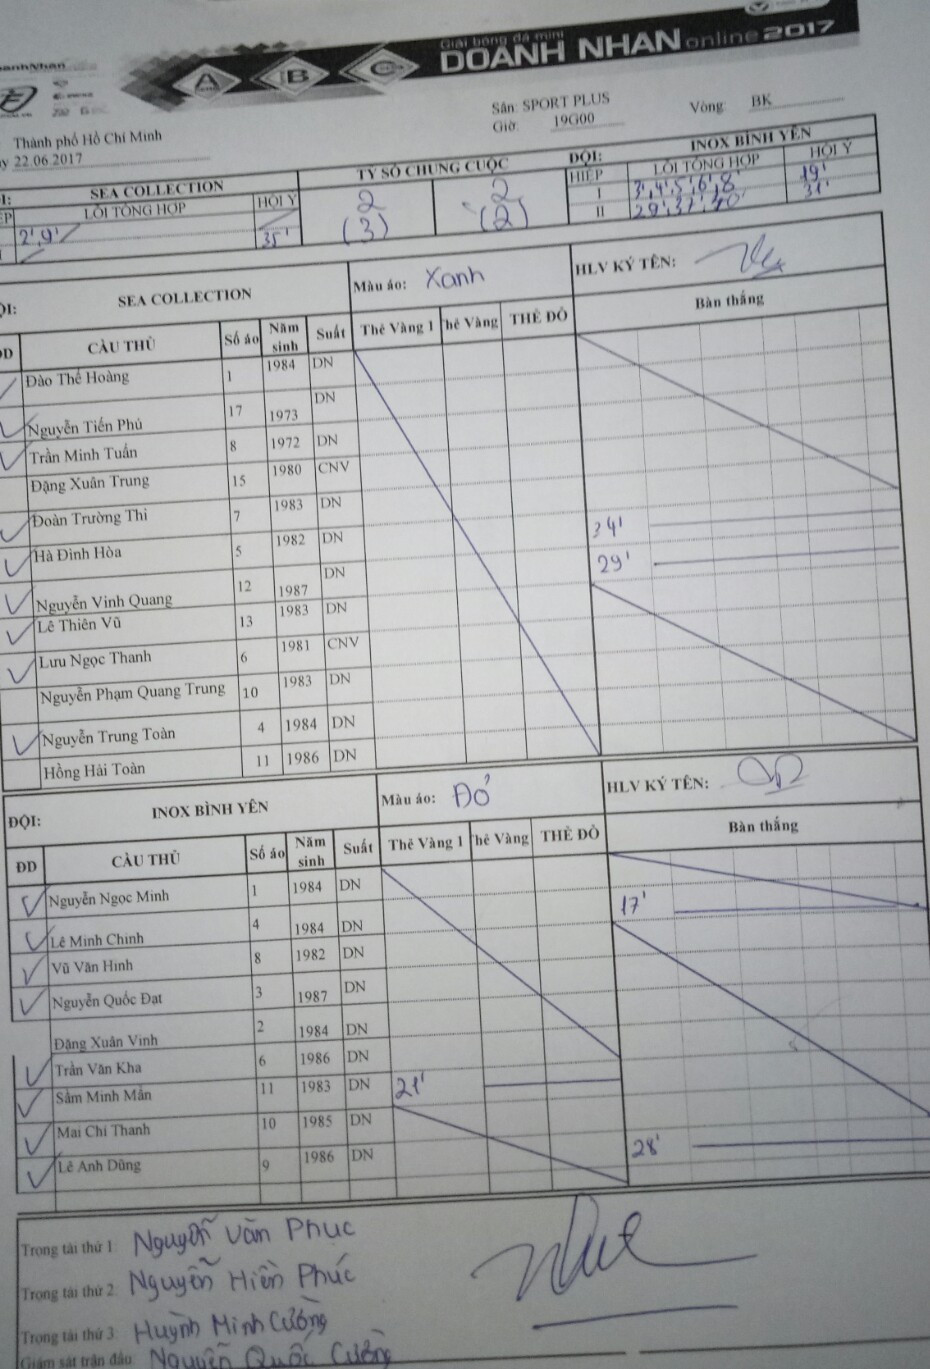 Giải bóng đá mini
DOANH NHAN online 2017
A B C
Sân: SPORT PLUS Vòng: BK
Thành phố Hồ Chí Minh Giờ: 19G00
22.06.2017
SEA COLLECTION TỶ SỐ CHUNG CUỘC ĐỘI: INOX BÌNH YÊN
LỖI TỔNG HỢP HỘI Ý HIỆP LỖI TỔNG HỢP HỘI Ý
2', 9' 2 (3) 2 (2) I 3', 4', 5', 6', 8' 19'
35' II 29', 37', 40' 31'
SEA COLLECTION Màu áo: Xanh HLV KÝ TÊN:
CẦU THỦ Số áo Năm sinh Suất Thẻ Vàng 1 Thẻ Vàng THẺ ĐỎ Bàn thắng
Đào Thế Hoàng 1 1984 DN
Nguyễn Tiến Phú 17 1973 DN
Trần Minh Tuấn 8 1972 DN
Đặng Xuân Trung 15 1980 CNV
Đoàn Trường Thi 7 1983 DN
Hà Đình Hòa 5 1982 DN 34'
Nguyễn Vinh Quang 12 1987 DN 29'
Lê Thiên Vũ 13 1983 DN
Lưu Ngọc Thanh 6 1981 CNV
Nguyễn Phạm Quang Trung 10 1983 DN
Nguyễn Trung Toàn 4 1984 DN
Hồng Hải Toàn 11 1986 DN
ĐỘI: INOX BÌNH YÊN Màu áo: Đỏ HLV KÝ TÊN:
ĐD CẦU THỦ Số áo Năm sinh Suất Thẻ Vàng 1 Thẻ Vàng THẺ ĐỎ Bàn thắng
Nguyễn Ngọc Minh 1 1984 DN
Lê Minh Chinh 4 1984 DN 17'
Vũ Văn Hinh 8 1982 DN
Nguyễn Quốc Đạt 3 1987 DN
Đặng Xuân Vinh 2 1984 DN
Trần Văn Kha 6 1986 DN
Sầm Minh Mẫn 11 1983 DN 21'
Mai Chí Thanh 10 1985 DN
Lê Anh Dũng 9 1986 DN 28'
Trọng tài thứ 1: Nguyễn Văn Phuc
Trọng tài thứ 2: Nguyễn Hiền Phúc
Trọng tài thứ 3: Huỳnh Minh Cường
Giám sát trận đấu: Nguyễn Quốc Cường